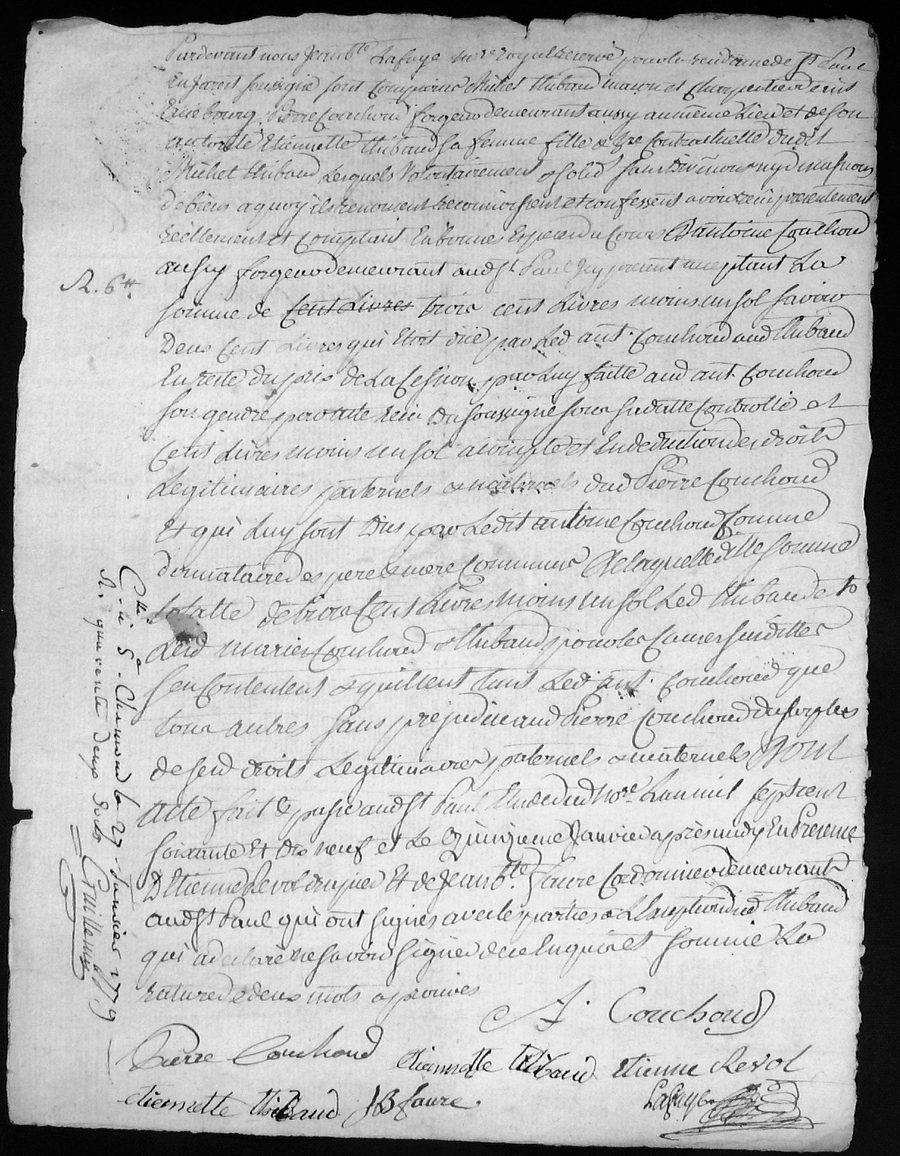 Pardevant nous Jean Bte Lafaye nore royal reservé pour la residence de St Paul
En Jarets soussigné sont comparus Michel thibaud masson et charpentier
bourg, Pierre Couchoud forgeur demeurant aussy au meme Lieu et de son
autorité Etiennette thibaud sa femme fille & hre contractuelle dudit
Michel thibaud Lesquels Volontairement & solid sans division ny discussion
de biens a quoy ils renoncent reconnoissent et confessent avoir reçu presentement
reellement et comptant En bonnes Especes du Cours D'antoine Couchoud
aussy forgeur demeurant aud St Paul Icy present acceptant La
somme de cent Livres trois cent Livres moins un sol savoir
Deux Cent Livres qui Etoit dûe par Led ant. Couchoud aud thibaud
En reste du prix de La Cession par Luy faitte aud ant. Couchoud
son gendre par acte reçu du soussigné sous sa datte Controllé et
Cent Livres moins un sol a compte et En deduction des droits
Legitimaires paternels & maternels dud Pierre Couchoud
Et qui Luy sont Dus par Ledit antoine Couchoud Comme
donnataire des pere & mere Communs De laquelle ditte somme
totalle de trois Cent Livres moins un sol Led thibaud &
Lesd maries Couchoud & thibaud pour les causes susdittes
s'en Contentent & quittent tant Led ant. Couchoud que
tous autres sans prejudice aud Pierre Couchoud du surplus
de sesd droits Legitimaires paternels & maternels Dont
acte fait & passé aud St Paul Etude dud nore L'an mil sept cent
soixante Et dix neuf et Le Quinzieme Janvier après midy En Presence
D'Etienne Revol drapier Et de Jean Bte Faure Cordonnier demeurant
aud St Paul qui ont signés avec les parties & L'exception dud thibaud
qui a declaré ne savoir signer de ce Enquis et sommé La
rature de deux mots approuvés
A. Couchoud
Pierre Couchoud etiennette thibaud Etienne Revol
etiennette thibaud JB faure. Lafaye
R. 6tt
Ctlé à St Chamond le 27 Janvier 1779
R. quarente deux sols
Guillemin